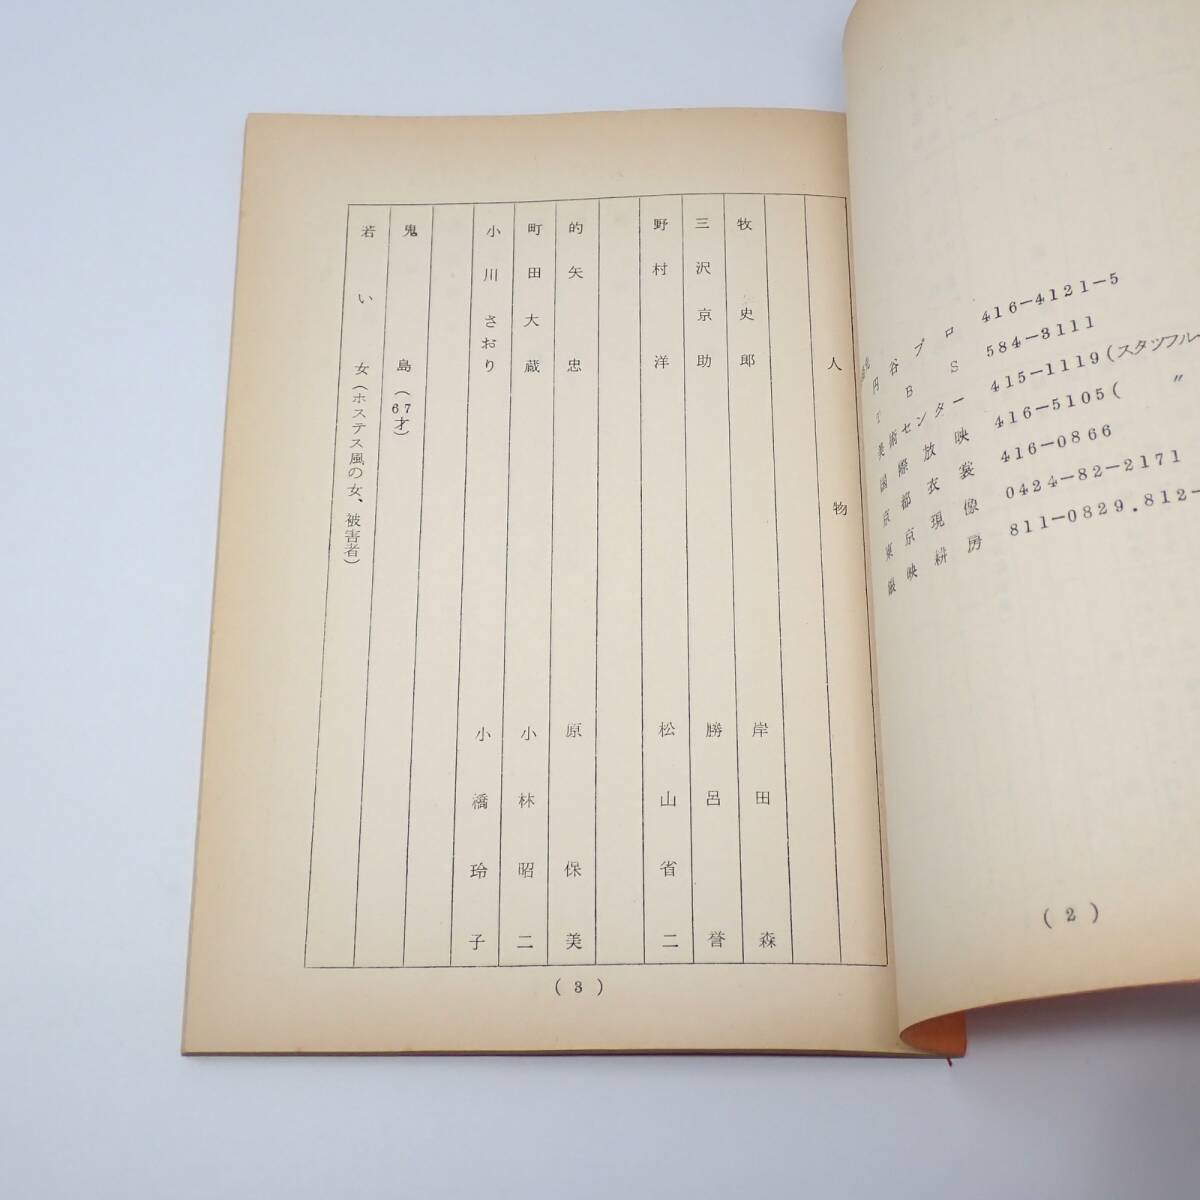 円谷プロ 416-4121-5
TBS 584-3111
美術センター 415-1119(スタッフルー
国際放映 416-5105( 〃
京都衣裳 416-0866
東京現像 0424-82-2171
映耕房 811-0829.812-
(2)
人物
牧史郎 岸田森
三沢京助 勝呂誉
野村洋 松山省二
的矢忠 原保美
町田大蔵 小林昭二
小川さおり 小橋玲子
鬼島(67才)
若い女(ホステス風の女、被害者)
(3)